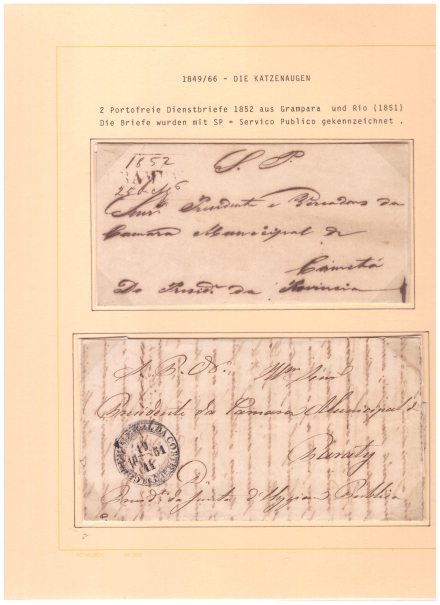 1849/66 - DIE KATZENAUGEN
2 Portofreie Dienstbriefe 1852 aus Grampara und Rio (1851)
Die Briefe wurden mit SP = Servico Publico gekennzeichnet .
1852
S. P.
Presidente e Vereadores da
Camara Municipal de
Cametá
Do Presid.e da Provincia
S. P. N.
Presidente da Camara Municipal d
Paraty
Presid.e da Junta d'Hygiene Publica